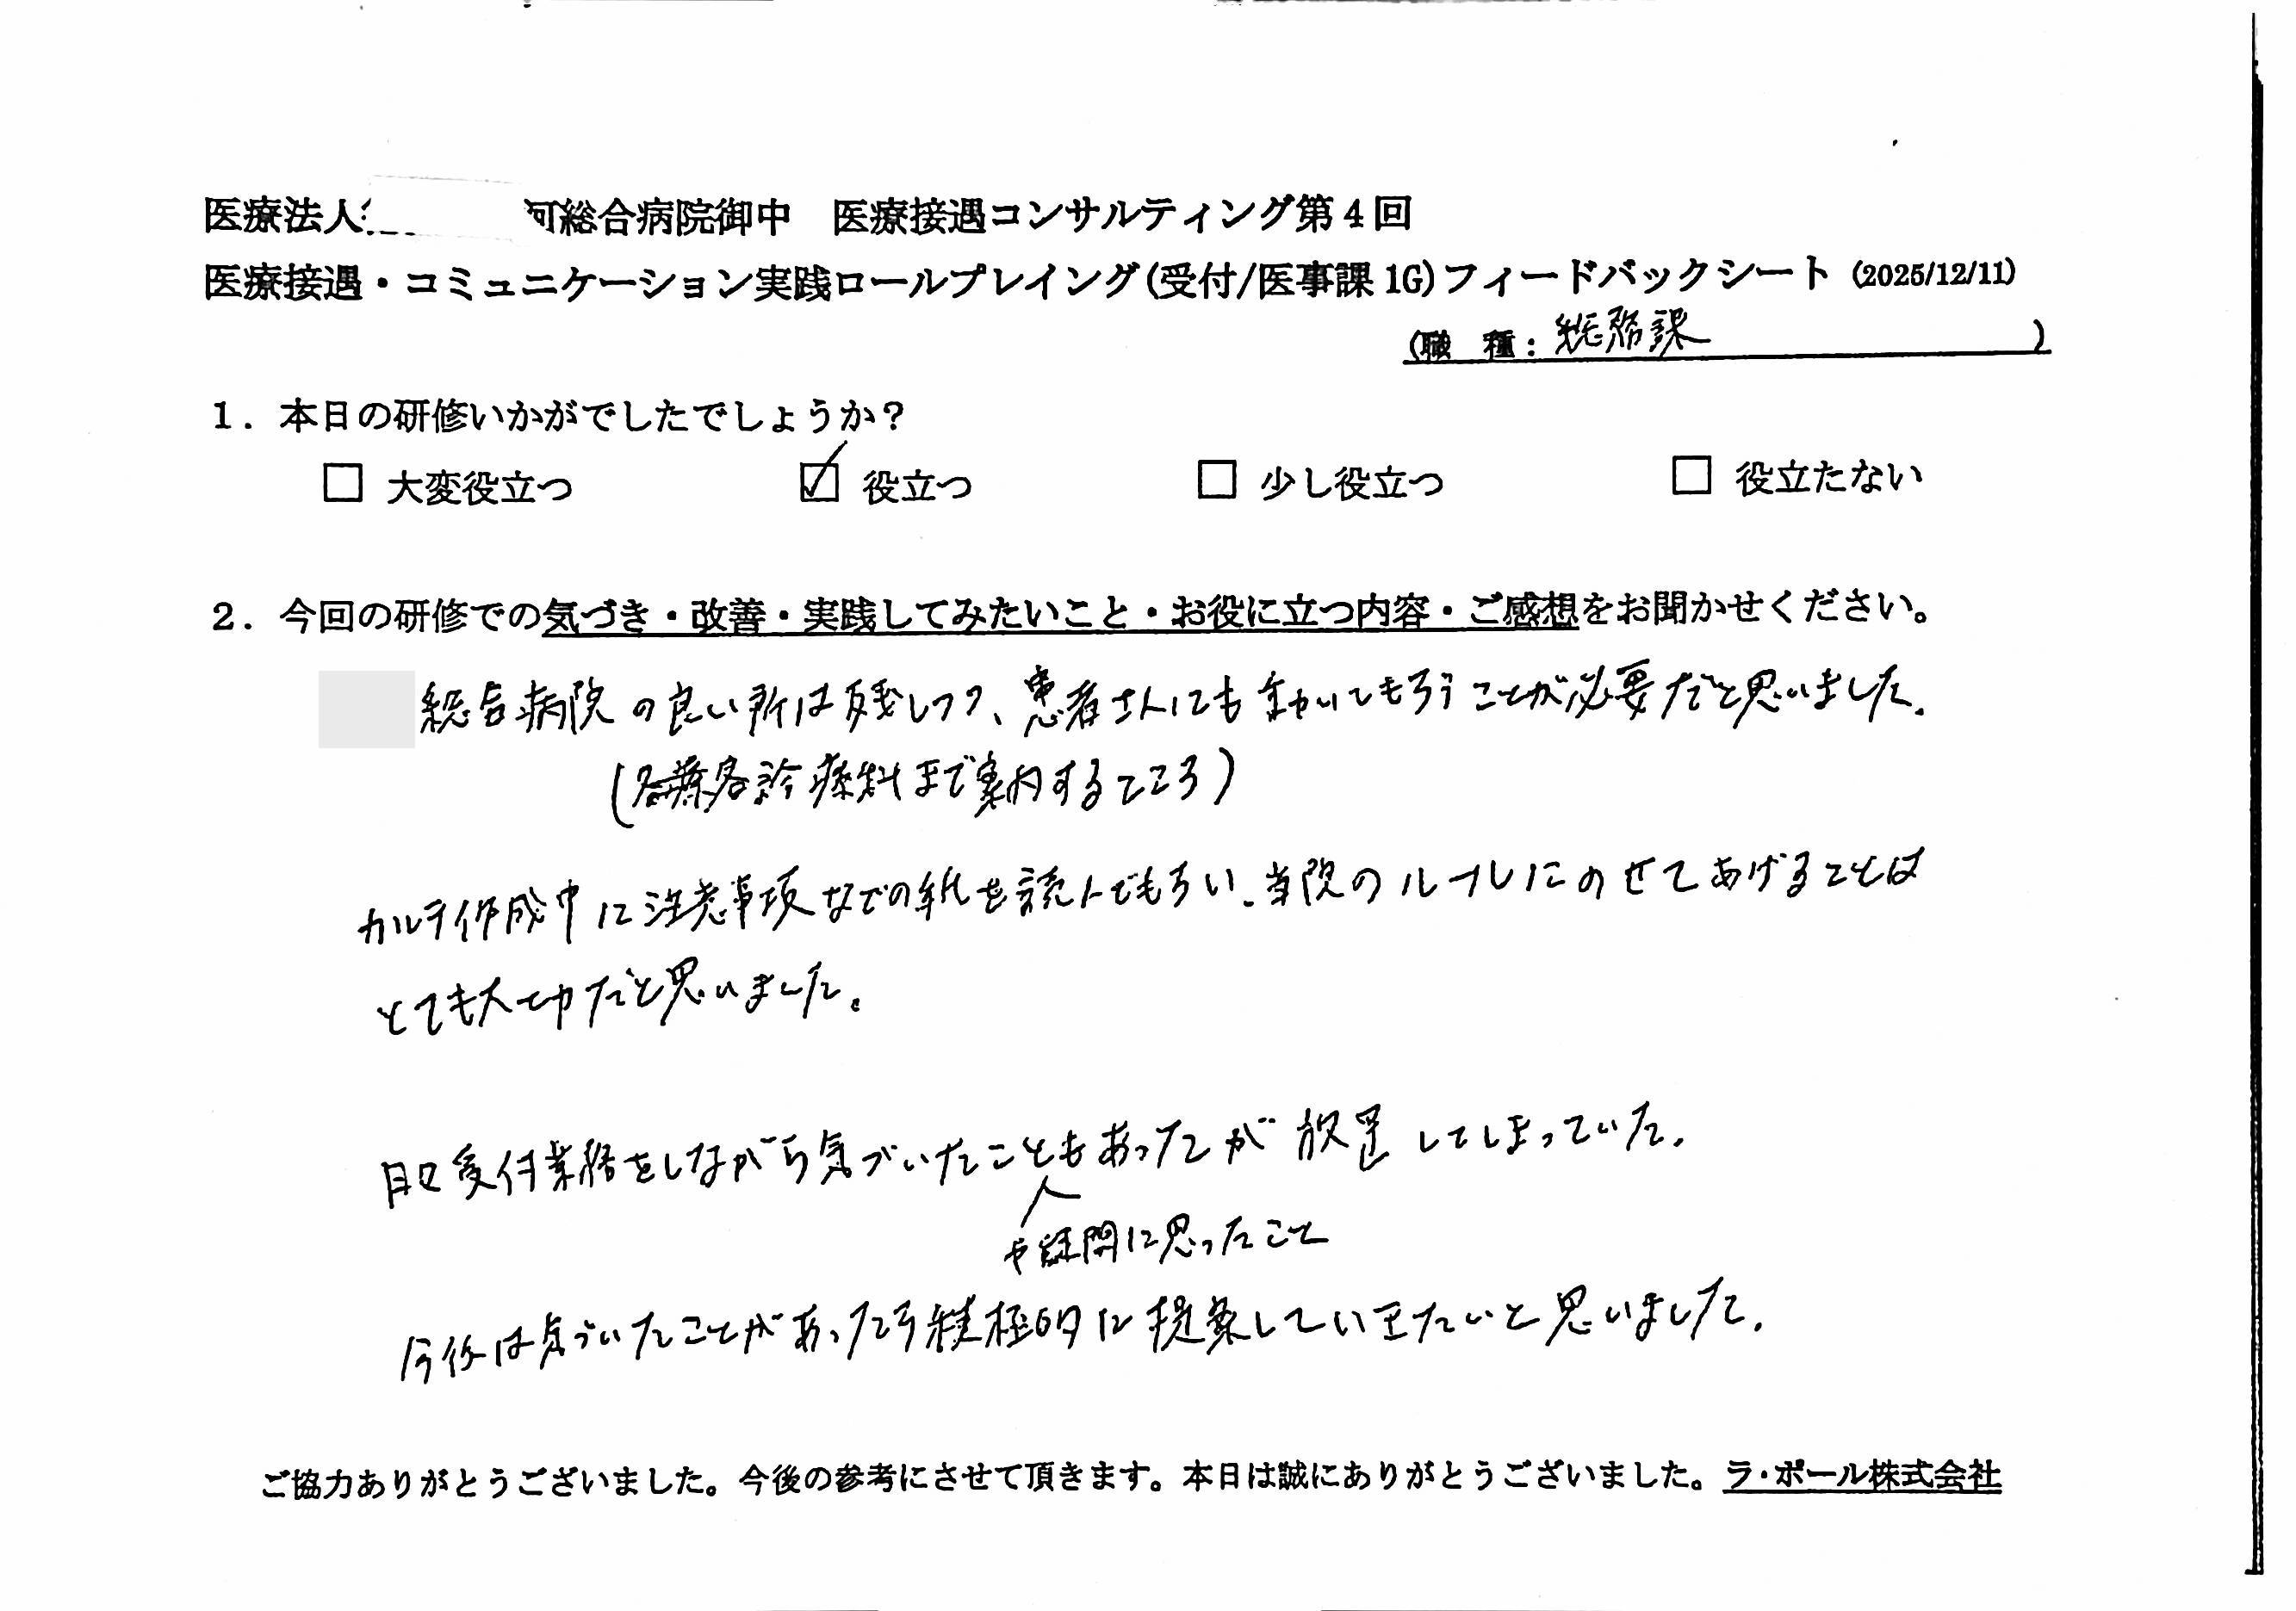 医療法人 可総合病院御中　医療接遇コンサルティング第4回
医療接遇・コミュニケーション実践ロールプレイング(受付/医事課1G)フィードバックシート (2025/12/11)
(職　種：総務課　)
1．本日の研修いかがでしたでしょうか？
□ 大変役立つ　☑ 役立つ　□ 少し役立つ　□ 役立たない
2．今回の研修での気づき・改善・実践してみたいこと・お役に立つ内容・ご感想をお聞かせください。
総合病院の良い所は残しつつ、患者さんにも動いてもらうことが必要だと思いました。
(各診療科まで案内するところ)
カルテ作成中に注意事項などの紙を読んでもらい、当院のルールにのせてあげることは
とても大切だと思いました。
日々受付業務をしながら気づいたこともあったが放置してしまっていた。
や疑問に思ったこと
今後は気づいたことがあったら積極的に提案していきたいと思いました。
ご協力ありがとうございました。今後の参考にさせて頂きます。本日は誠にありがとうございました。ラ・ポール株式会社